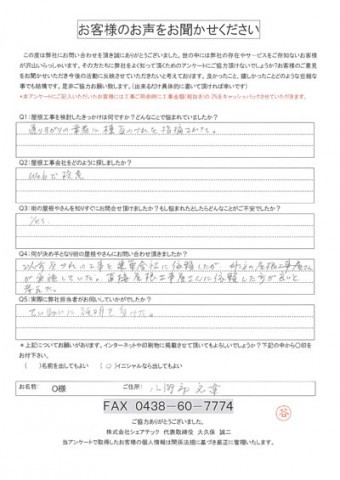 お客様のお声をお聞かせください
この度は弊社にお問い合わせを頂き誠にありがとうございました。世の中には弊社の存在やサービスをご存知ないお客様
が沢山いらっしゃいます。その方たちに弊社をよく知って頂くためのアンケートにご協力頂けないでしょうか?お客様のご意見
をお聞かせいただき今後の活動に反映させていただきたいと考えております。良かったこと、嬉しかったことどのような些細な
事でも結構です。是非ご協力お願い致します。(出来るだけ具体的に書いて頂ければ幸いです)
Q1:屋根工事を検討したきっかけは何ですか?どんなことで悩まれていましたか?
通りがかりの業者に棟瓦のずれを指摘されて。
Q2:屋根工事会社をどのように探しましたか?
Webで検索
Q3:街の屋根やさんを知りすぐにお問合せ頂けましたか?もし悩まれたとしたらどんなことがご不安でしたか?
Q4:何が決め手となり街の屋根やさんにお問い合わせ頂きましたか?
が実施していた。直接屋根工事屋さんに依頼した方が良いと
考えた。
Q5:実際に弊社担当者がお伺いしていかがでしたか?
ていねいに説明を受けた。
*上記についてお願いがあります。インターネットや印刷物に掲載させて頂いてもよろしいでしょうか?下記の中から〇印を
お付下さい。
( )名前を出してもよい (〇)イニシャルなら出してもよい
お名前: O様 ご住所:
FAX 0438-60-7774
ご協力ありがとうございました。
株式会社シェアテック 代表取締役 大久保 誠二
当アンケートで取得したお客様の個人情報は関係法規に基づき厳正に管理いたします。